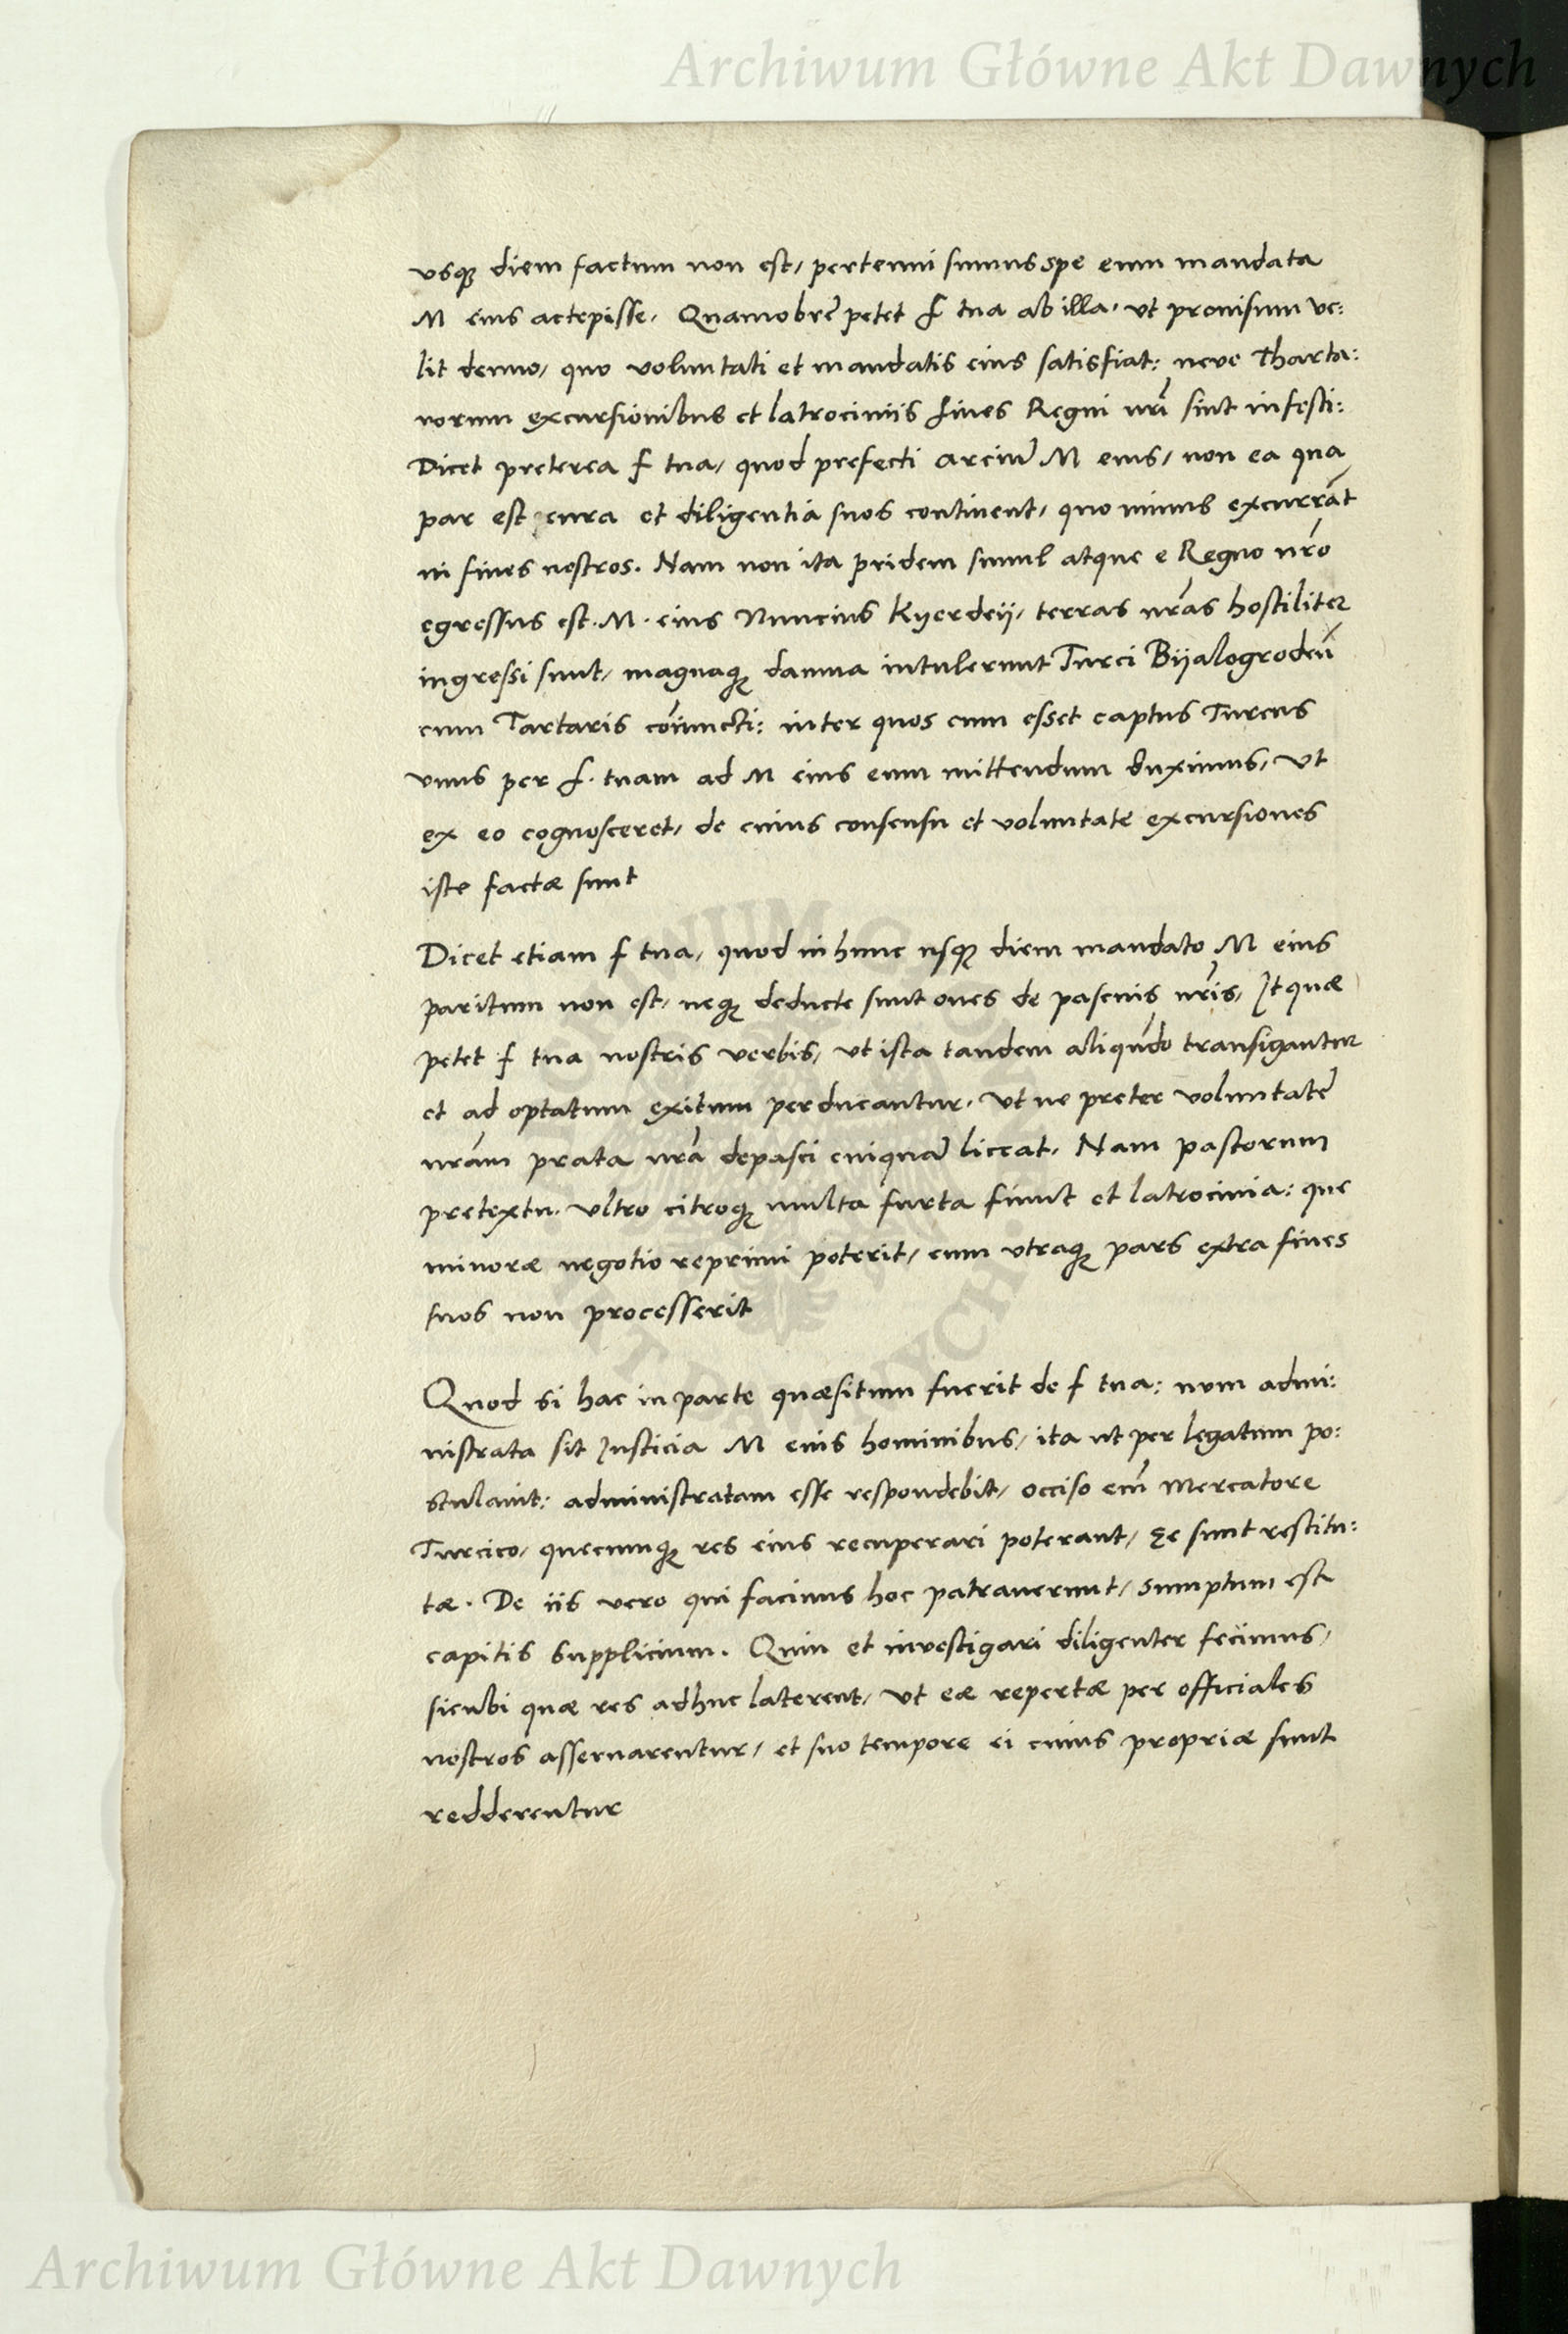 Archiwum Główne Akt Dawnych
vsq3 diem factum non est, pertenui sumus spe eum mandata
M eius accepisse, Quamobrē petet f tua ab illa, vt prouisum ve:
lit denuo, quo voluntati et mandatis eius satisfiat: neve Tharta:
rorum excursionibus et latrociniis fines Regni nrī sint infesti:
Dicet preterea f tua, quod prefecti arciū M eius, non ea qua
par est cura et diligentia suos continent, quo minus excurrāt
in fines nostros. Nam non ita pridem simul atque e Regno nrō
egressus est. M. eius Nuncius Kyerdeij, terras nrās hostiliter
ingressi sunt, magnaq3 damna intulerunt Turci Bijalogrodeñ
cum Tartaris cōiuncti: inter quos cum esset captus Turcus
vnus per f. tuam ad M eius eum mittendum duximus, vt
ex eo cognosceret, de cuius consensu et voluntate excursiones
iste factæ sunt
Dicet etiam f tua, quod in hunc usq3 diem mandato M eius
paritum non est, neq3 deducte sunt oues de pascuis nrīs, Itquæ
petet f tua nostris verbis, vt ista tandem aliquādo transigantur
et ad optatum exitum perducantur, vt ne preter voluntatē
nrām prata nrā depasci cuiquā liceat, Nam pastorum
pretextu, vltro citroq3 multa furta fiunt et latrocinia: que
minoræ negotio reprimi poterit, cum vtraq3 pars extra fines
suos non processerit
Quod si hac in parte quæsitum fuerit de f tua: num admi:
nistrata sit Iusticia M eius hominibus, ita ut per legatum po:
stulauit: administratam esse respondebit, occiso em̄ Mercatore
Turcico, quecumq3 res eius recuperari poterant, ęe sunt restitu:
tæ. De iis vero qui facinus hoc patrauerunt, sumptum est
capitis supplicium. Quin et investigari diligenter fecimus,
sicubi quæ res adhuc laterent, vt eæ repertæ per officiales
nostros asseruarentur, et suo tempore ei cuius propriæ sunt
redderentur
Archiwum Główne Akt Dawnych